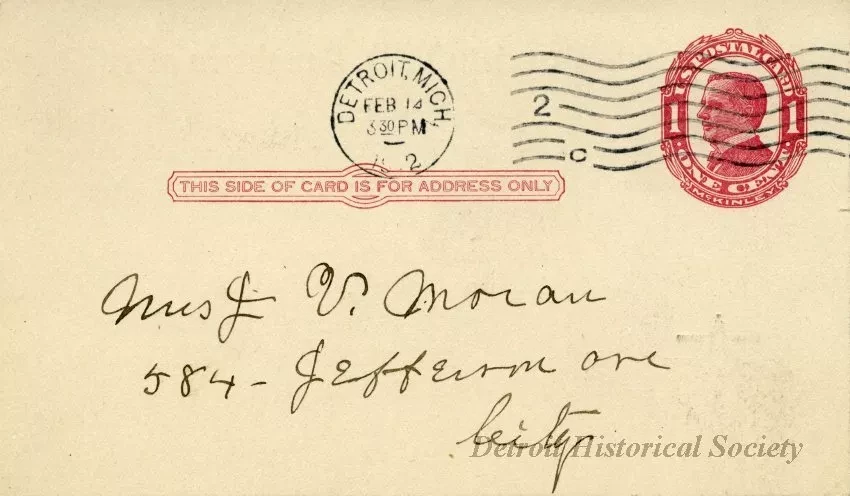 U.S. POSTAL CARD
1 1
ONE CENT
McKINLEY
DETROIT, MICH.
FEB 14
3 30 PM
2
C
THIS SIDE OF CARD IS FOR ADDRESS ONLY
Mrs J V. Moran
584 - Jefferson ave
City
Detroit Historical Society